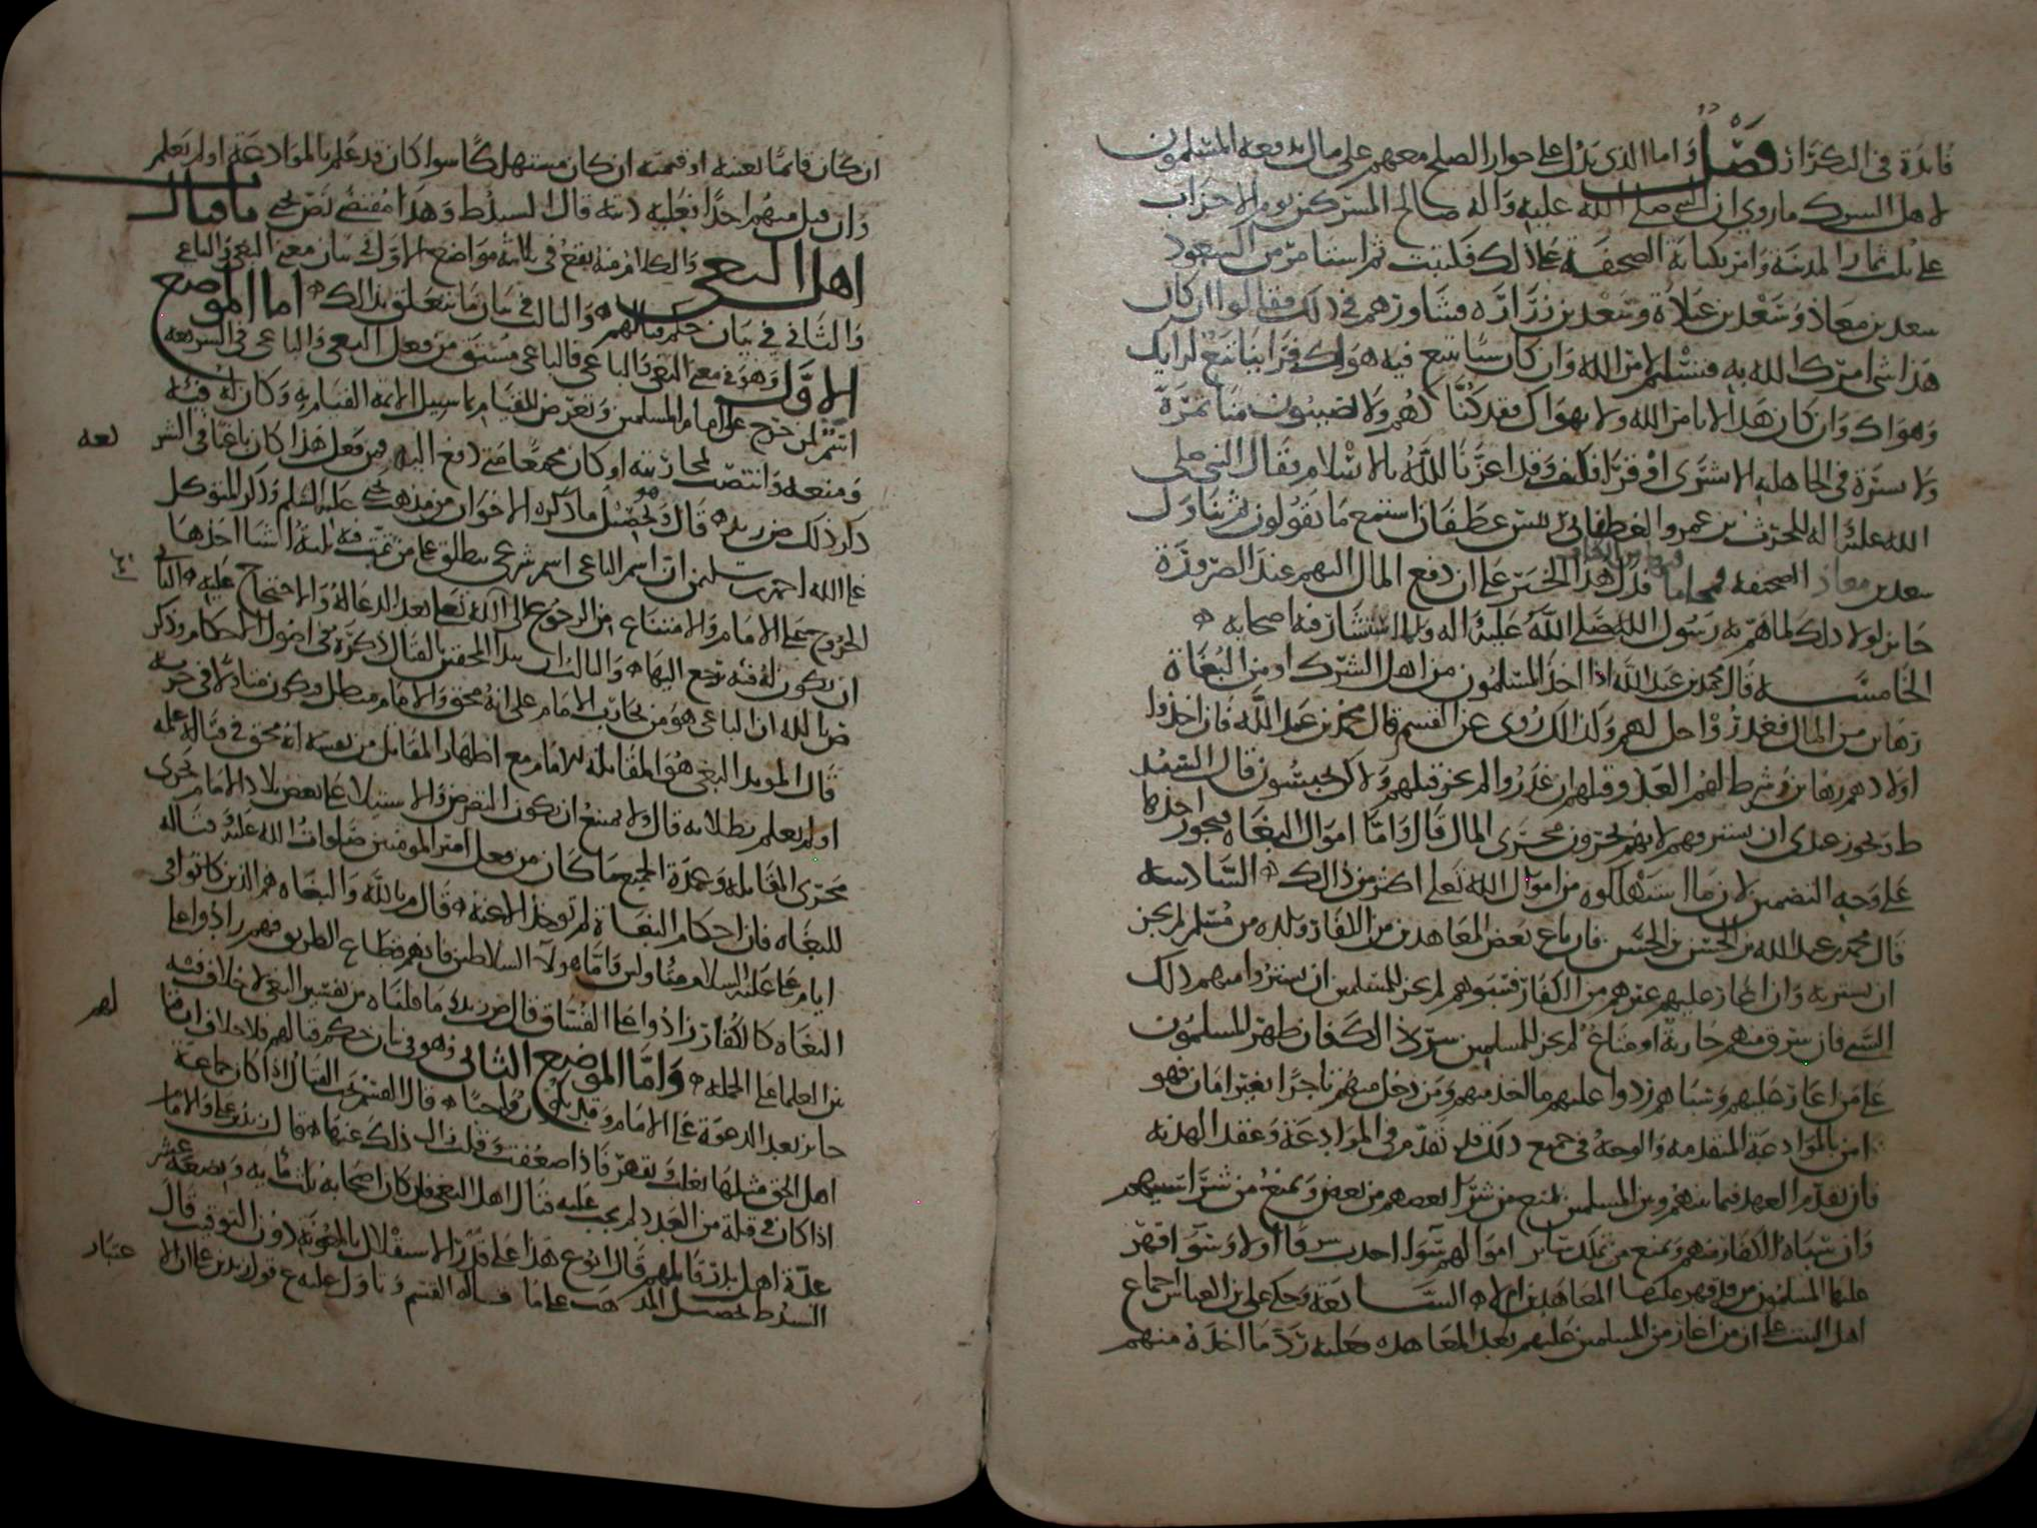 فائدة في التكرار فصل واما الذي يدل على جواز الصلح معهم على مال يدفعه المسلمون
لاهل الشرك ما روي ان النبي صلى الله عليه واله صالح المشركين يوم الاحزاب
على ثلث ثمار المدينة وامر بكتابة الصحيفة على ذلك فكتبت ثم استامر من السعود
سعد بن معاذ وسعد بن عبادة وسعد بن زرارة وشاورهم في ذلك فقالوا ان كان
هذا شي امرك الله به فنسلم لامر الله وان كان شيا تتبع فيه هواك فراينا تبع لرايك
وهواك وان كان هذا لا بامر الله ولا بهواك فقد كنا لهم ولا يصيبون منا تمرة
ولا بسرة في الجاهلية الا بشرى او قرى فكيف وقد اعزنا الله بالاسلام فقال النبي صلى
الله عليه واله للحرث بن عمرو الغطفاني رئيس غطفان استمع ما يقولون ثم تناول
سعد بن معاذ الصحيفة فمحاها فدل هذا الخبر على ان دفع المال اليهم عند الضرورة
جائز لولا ذلك لما هم به رسول الله صلى الله عليه واله ولما استشار فيه اصحابه
الخامسة قال محمد بن عبد الله اذا اخذ المسلمون من اهل الشرك او من البغاة
رهائن من المال فغدروا حل لهم وكذلك روي عن القسم قال محمد بن عبد الله فان اخذوا
اولادهم رهائن وشرط لهم الغدر وقبلهم ان غدروا لم يجز قتلهم ولاكن يحبسون قال السيد
ط ويجوز عندي ان يسترقهم لانهم يجرون مجرى المال قال واما اموال البغاة فيجوز اخذها
على وجه التضمين لان ما استهلكوه من اموال الله تعالى اكثر من ذالك السادسة
قال محمد بن عبد الله بن الحسن بن الحسن فان باع بعض المعاهدين من الكفار ولده من مسلم لم يجز
ان يشتريه وان اغار عليهم غيرهم من الكفار فسبوهم لم يجز للمسلمين ان يشتروا منهم ذلك
السبي فان سرق منهم جارية او متاع لم يجز للمسلمين شرى ذالك فان ظهر المسلمون
على من اغار عليهم وسباهم ردوا عليهم ما اخذ منهم ومن دخل منهم تاجرا بغير امان فهو
امن بالموادعة المتقدمة والوجه في جميع ذلك قد تقدم في الموادعة وعقد الهدنة
فان تقدم العهد فيما بينهم وبين المسلمين لمنع من شرا بعضهم من بعض ويمنع من شرا سبيهم
وان سباه الكفار منهم ويمنع من تملك سائر اموالهم سوا احدث شرقا اولا وسوا قهر
عليها المسلمون من قد قهر عليها المعاهدين ام لا السابعة وحكى علي بن العباس اجماع
اهل البيت على ان من اغار من المسلمين عليهم بعد المعاهدة فعليه رد ما اخذه منهم
ان كان قائما بعينه او قيمته ان كان مستهلكا سوا كان قد علم بالموادعة او لم يعلم
وان قتل منهم احدا فعليه ديته قال السيد ط وهذا مقتضى نص يحيى باب قتال
اهل البغي والكلام منه يقع في ثلاثة مواضع الاول في بيان معنى البغي والباغي
والثاني في بيان حكم قتالهم والثالث في بيان ما يتعلق بذالك اما الموضع
الاول وهو في معنى البغي والباغي فالباغي مشتق من فعل البغي والباغي في الشريعة
اسم لمن خرج على امام المسلمين وتعرض للقيام بما سبيل الائمة القيام به وكان له فئة
ومنعة وانتصب لمحاربته او كان مجمعا متى دفع اليه فمن فعل هذا كان باغيا في الشر
ذكر ذلك ض زيد قال وتحصيل ما ذكره الاخوان من مذهب يحيى عليه السلم وذكر المتوكل
على الله احمد بن سليمن ان اسم الباغي اسم شرعي يطلق على من ثبت فيه ثلثة اشيا احدها
الخروج على الامام والامتناع من الرجوع الى الله تعالى بعد الدعا له والاحتجاج عليه الثاني
ان يكون له فئة يرجع اليها والثالث ان يبدا المحقين بالقتال ذكره في اصول الاحكام وذكر
ض بالله ان الباغي هو من يحارب الامام على انه محق والامام مبطل ويكون متاولا في حربه
قال المويد البغي هو المقاتلة للامام مع اظهار المقاتل من نفسه انه محق في قتاله علمه
او لم يعلم بطلانه قال ولا يمتنع ان يكون التعرض والاستيلا على بعض بلاد الامام يجري
مجرى المقاتلة وعمدة الجميع ما كان من فعل امير المومنين صلوات الله عليه وقتاله
للبغاه فان احكام البغاة لم توخذ الا عنه قال م بالله والبغاه هم الذين كانوا في
ايام علي عليه السلام متاولين واما هولا السلاطين فانهم قطاع الطريق فهم زادوا على
البغاه كالكفار زادوا على الفساق قال ض زيد ما قلناه من تفسير البغي لا خلاف فيه
بين العلما على الجملة واما الموضع الثاني وهو في بيان حكم قتالهم فلا خلاف ان قتا
جائز بعد الدعوة على الامام وقد يكون واجبا قال القسم يجب القتال اذا كان جماعة
اهل الحق مثلها يغلب ويقهر فاذا ضعفت وقلت زال ذلك عنها قال زيد بن علي والامام
اذا كان في قلة من العدد لم يجب عليه قتال اهل البغي فان كان اصحابه ثلث مائة وبضعة عشر
عدة اهل بدر قاتلهم قال ابو ع هذا على قدر الاستقلال بالمونة دون التوقيت قال
السيد ط تحصيل المذهب على ما قاله القسم وتاول عليه ع قول زيد بن علي ان الا
لهم
عتبار